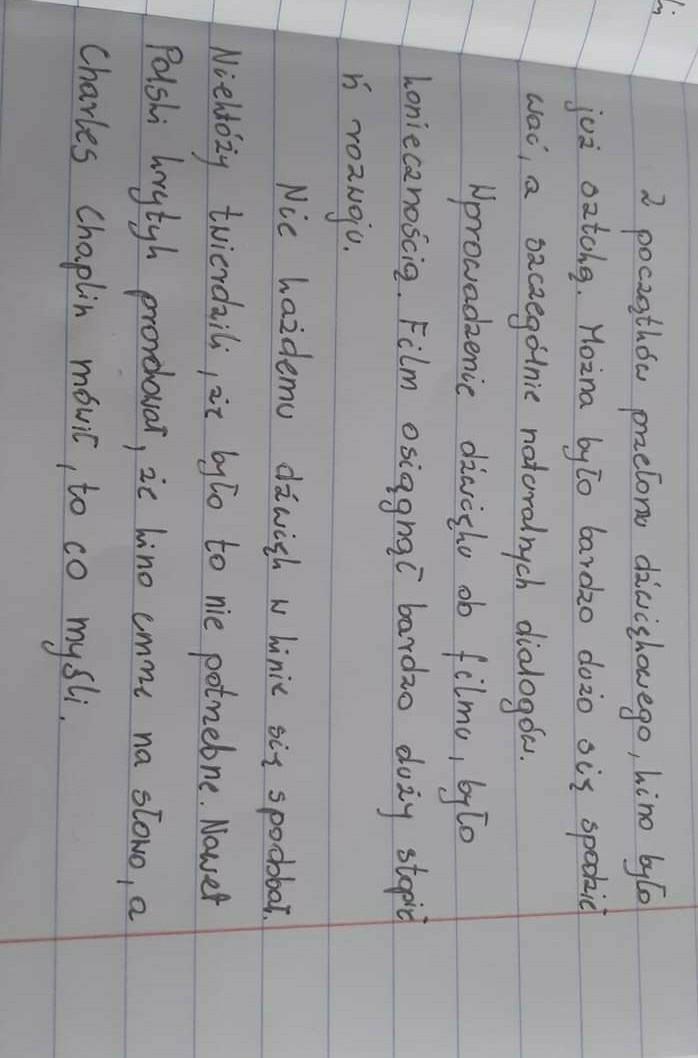 Z początków przełomu dźwiękowego, kino było
już sztuką. Można było bardzo dużo się spodzie
wać, a szczególnie naturalnych dialogów.
Wprowadzenie dźwięku do filmu, było
koniecznością. Film osiągnąć bardzo duży stopie
ń rozwoju.
Nie każdemu dźwięk w kinie się spodobał.
Niektóży twierdzili, że było to nie potrzebne. Nawet
Polski krytyk prorokował, że kino umrze na słowo, a
Charles Chaplin mówił, to co myśli.